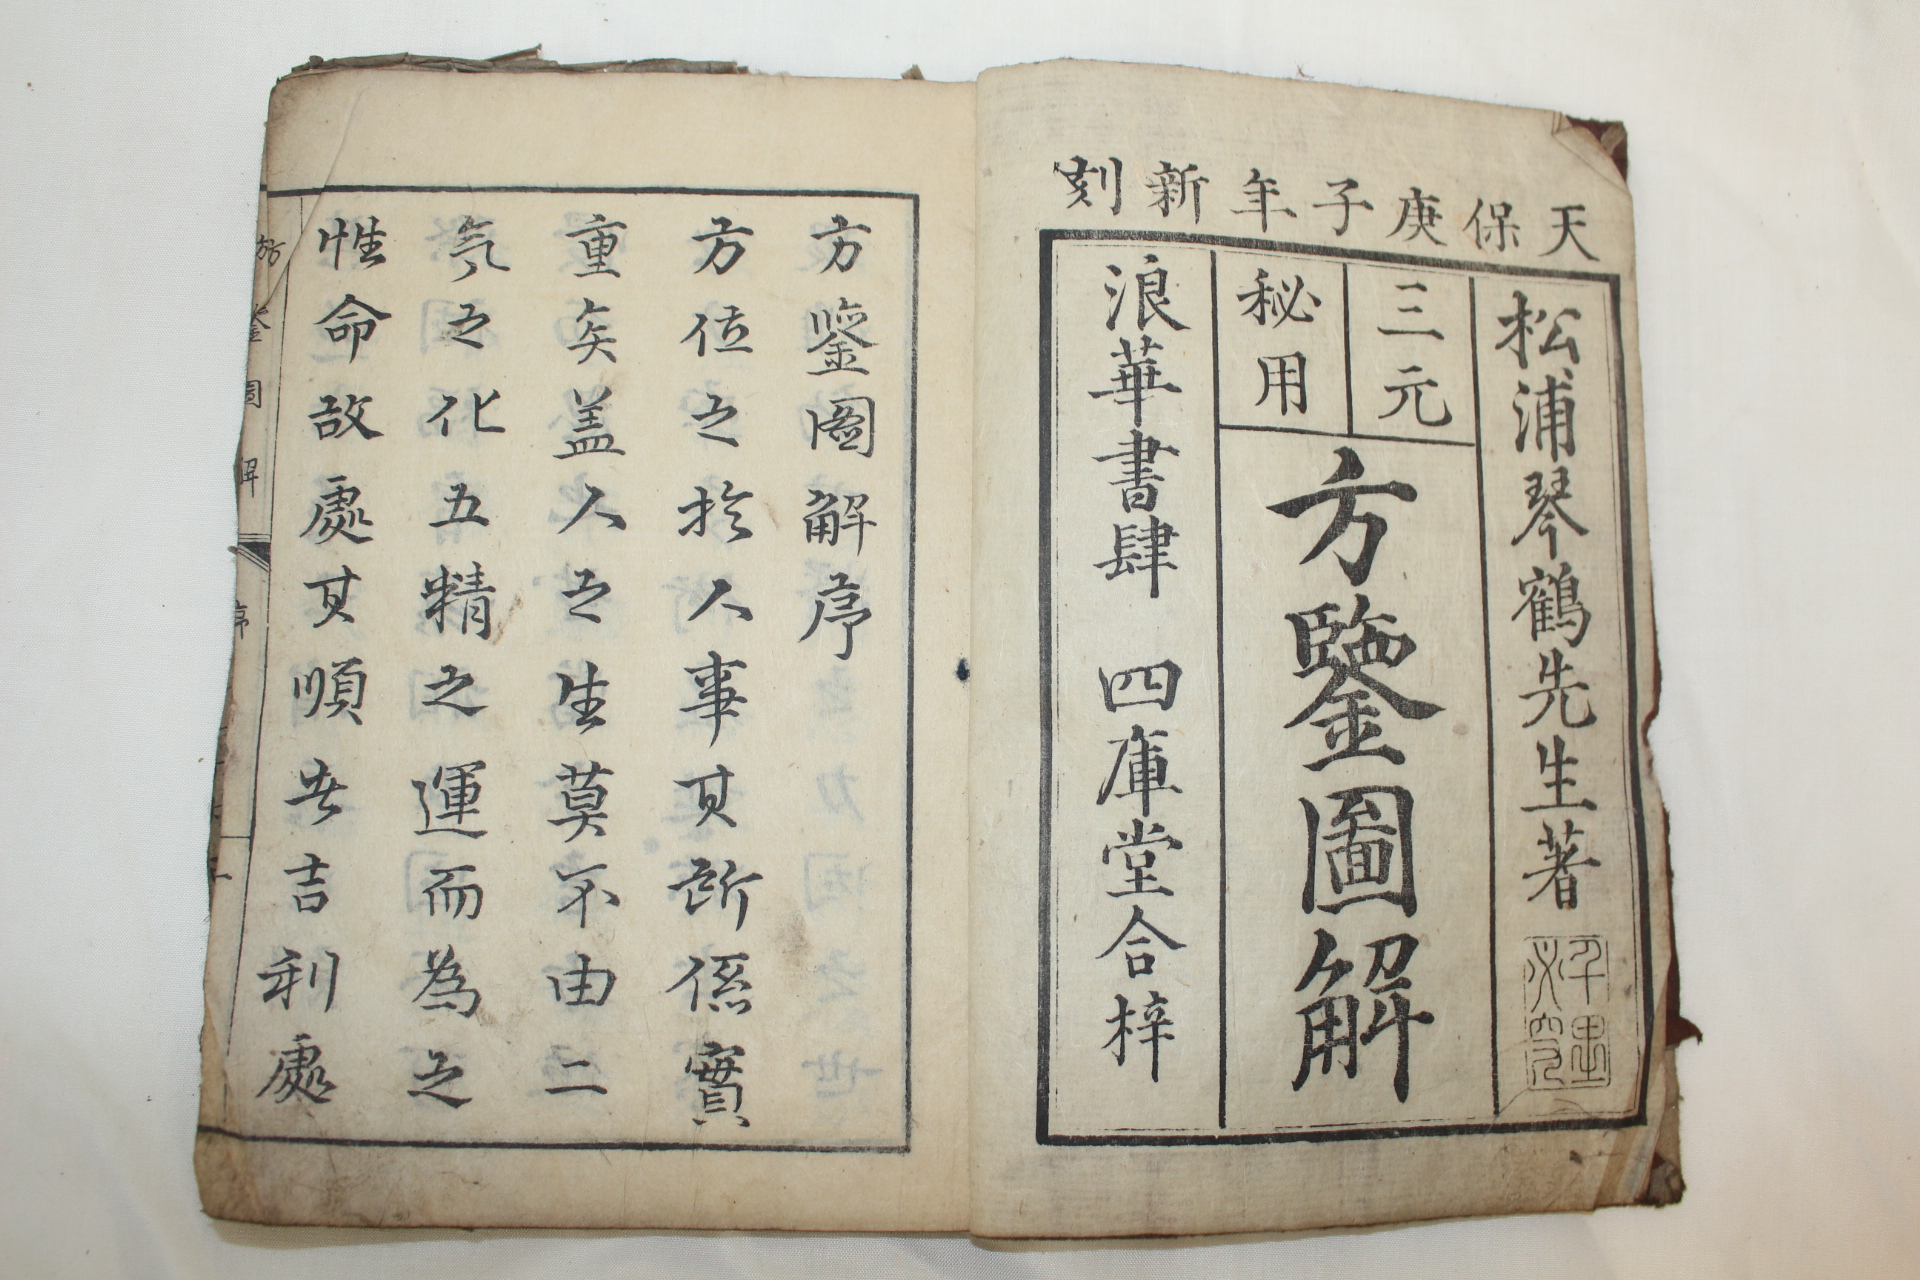 天保庚子年新刻
松浦琴鶴先生著
三元
秘用
方鑒圖解
浪華書肆 四庫堂合梓
方鑒圖解序
方位之於人事其所係實
重矣盖人之生莫不由二
氣之化五精之運而為之
性命故處其順者吉利處